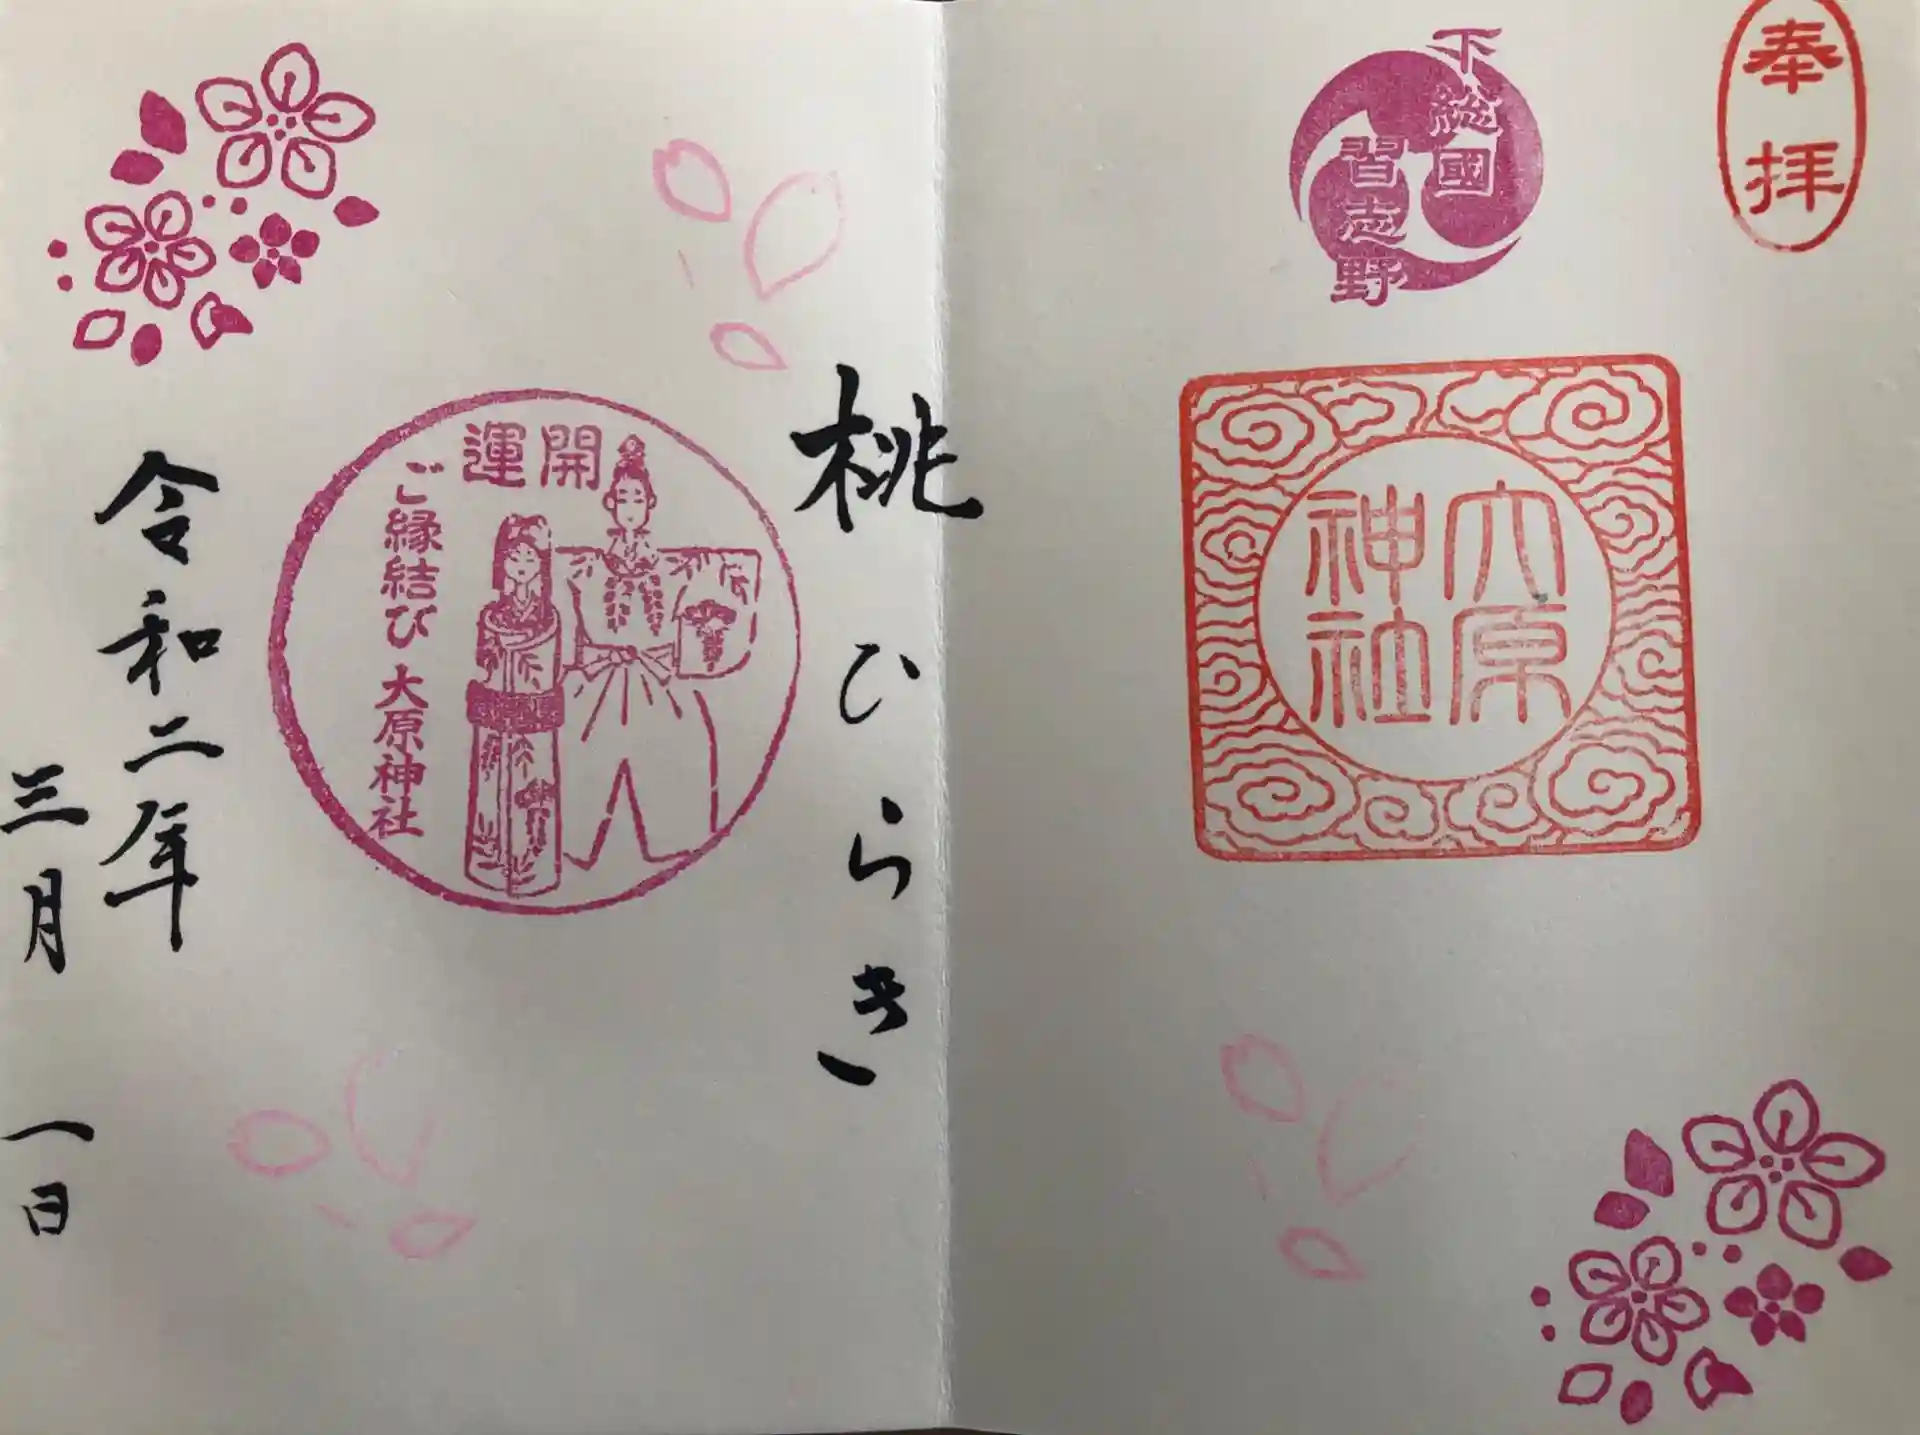 奉拝
下総國
習志野
大原
神社
桃ひらき
開運
ご縁結び 大原神社
令和二年
三月 一日